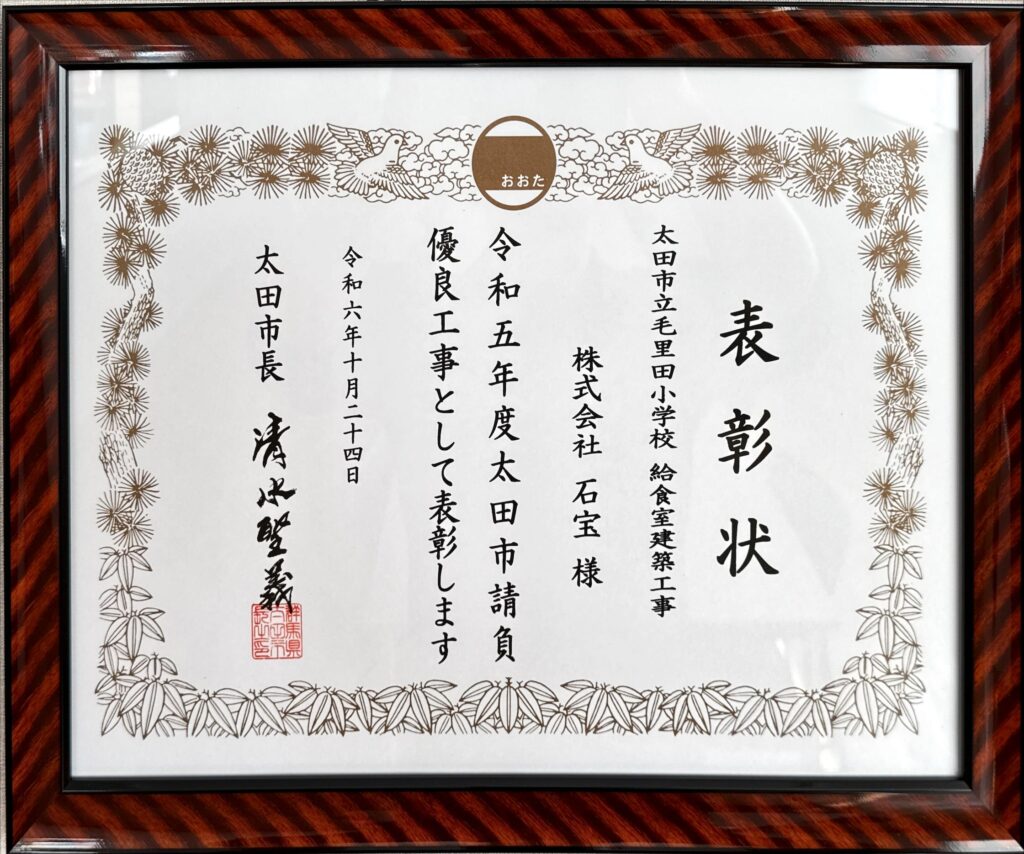 おおた
表彰状
太田市立毛里田小学校 給食室建築工事
株式会社 石宝 様
令和五年度太田市請負
優良工事として表彰します
令和六年十月二十四日
太田市長 清水聖義